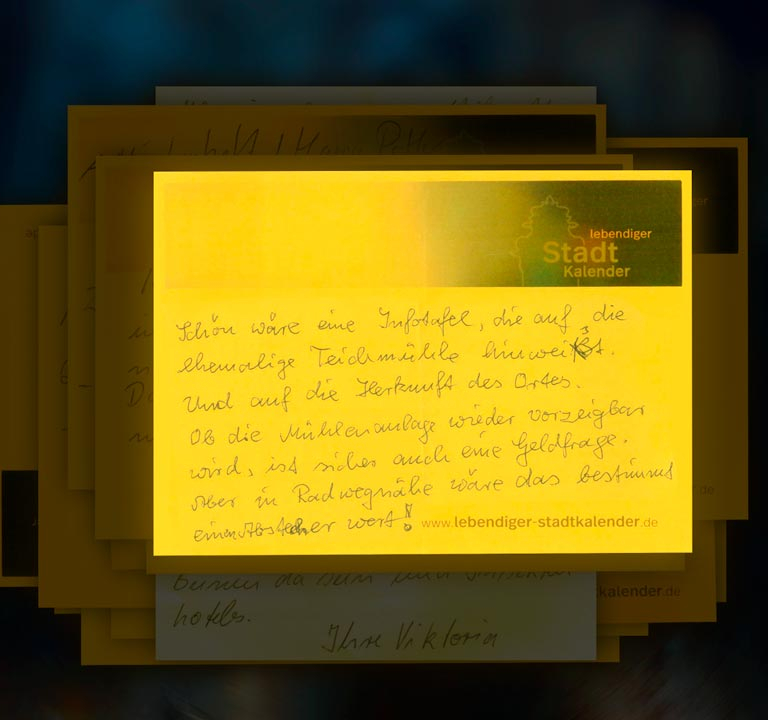 lebendiger
Stadt
Kalender
Schön wäre eine Infotafel, die auf die
ehemalige Teichmühle hinweist.
Und auf die Herkunft des Ortes.
Ob die Mühlenanlage wieder vorzeigbar
wird, ist sicher auch eine Geldfrage.
Aber in Radwegnähe wäre das bestimmt
einen Abstecher wert!
www.lebendiger-stadtkalender.de
tkalender.de
hotels.
Ihre Viktoria